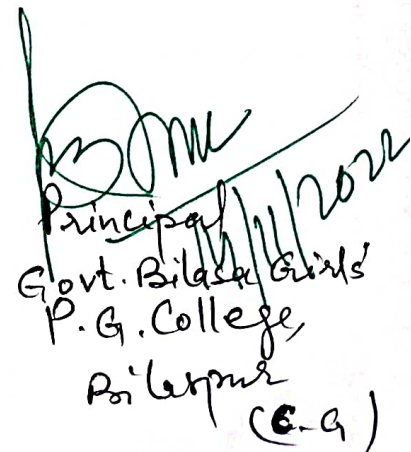 16/11/2022
Principal
Govt. Bilasa Girls'
P.G. College,
Bilaspur
(C.G)